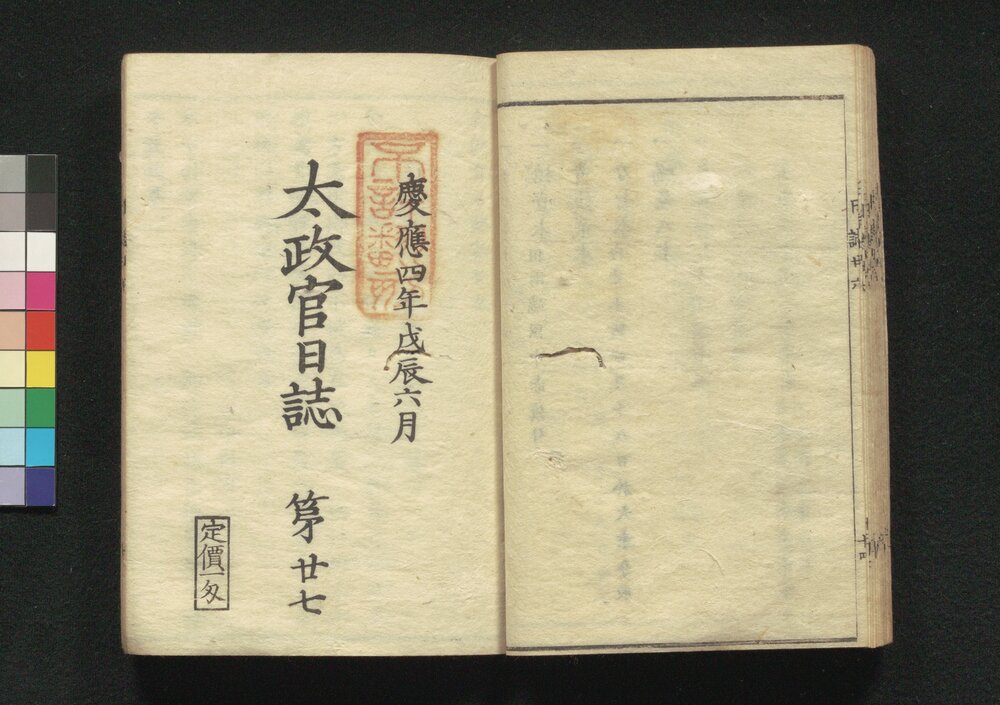 慶應四年戊辰六月
太政官日誌
第廿七
定價一匁